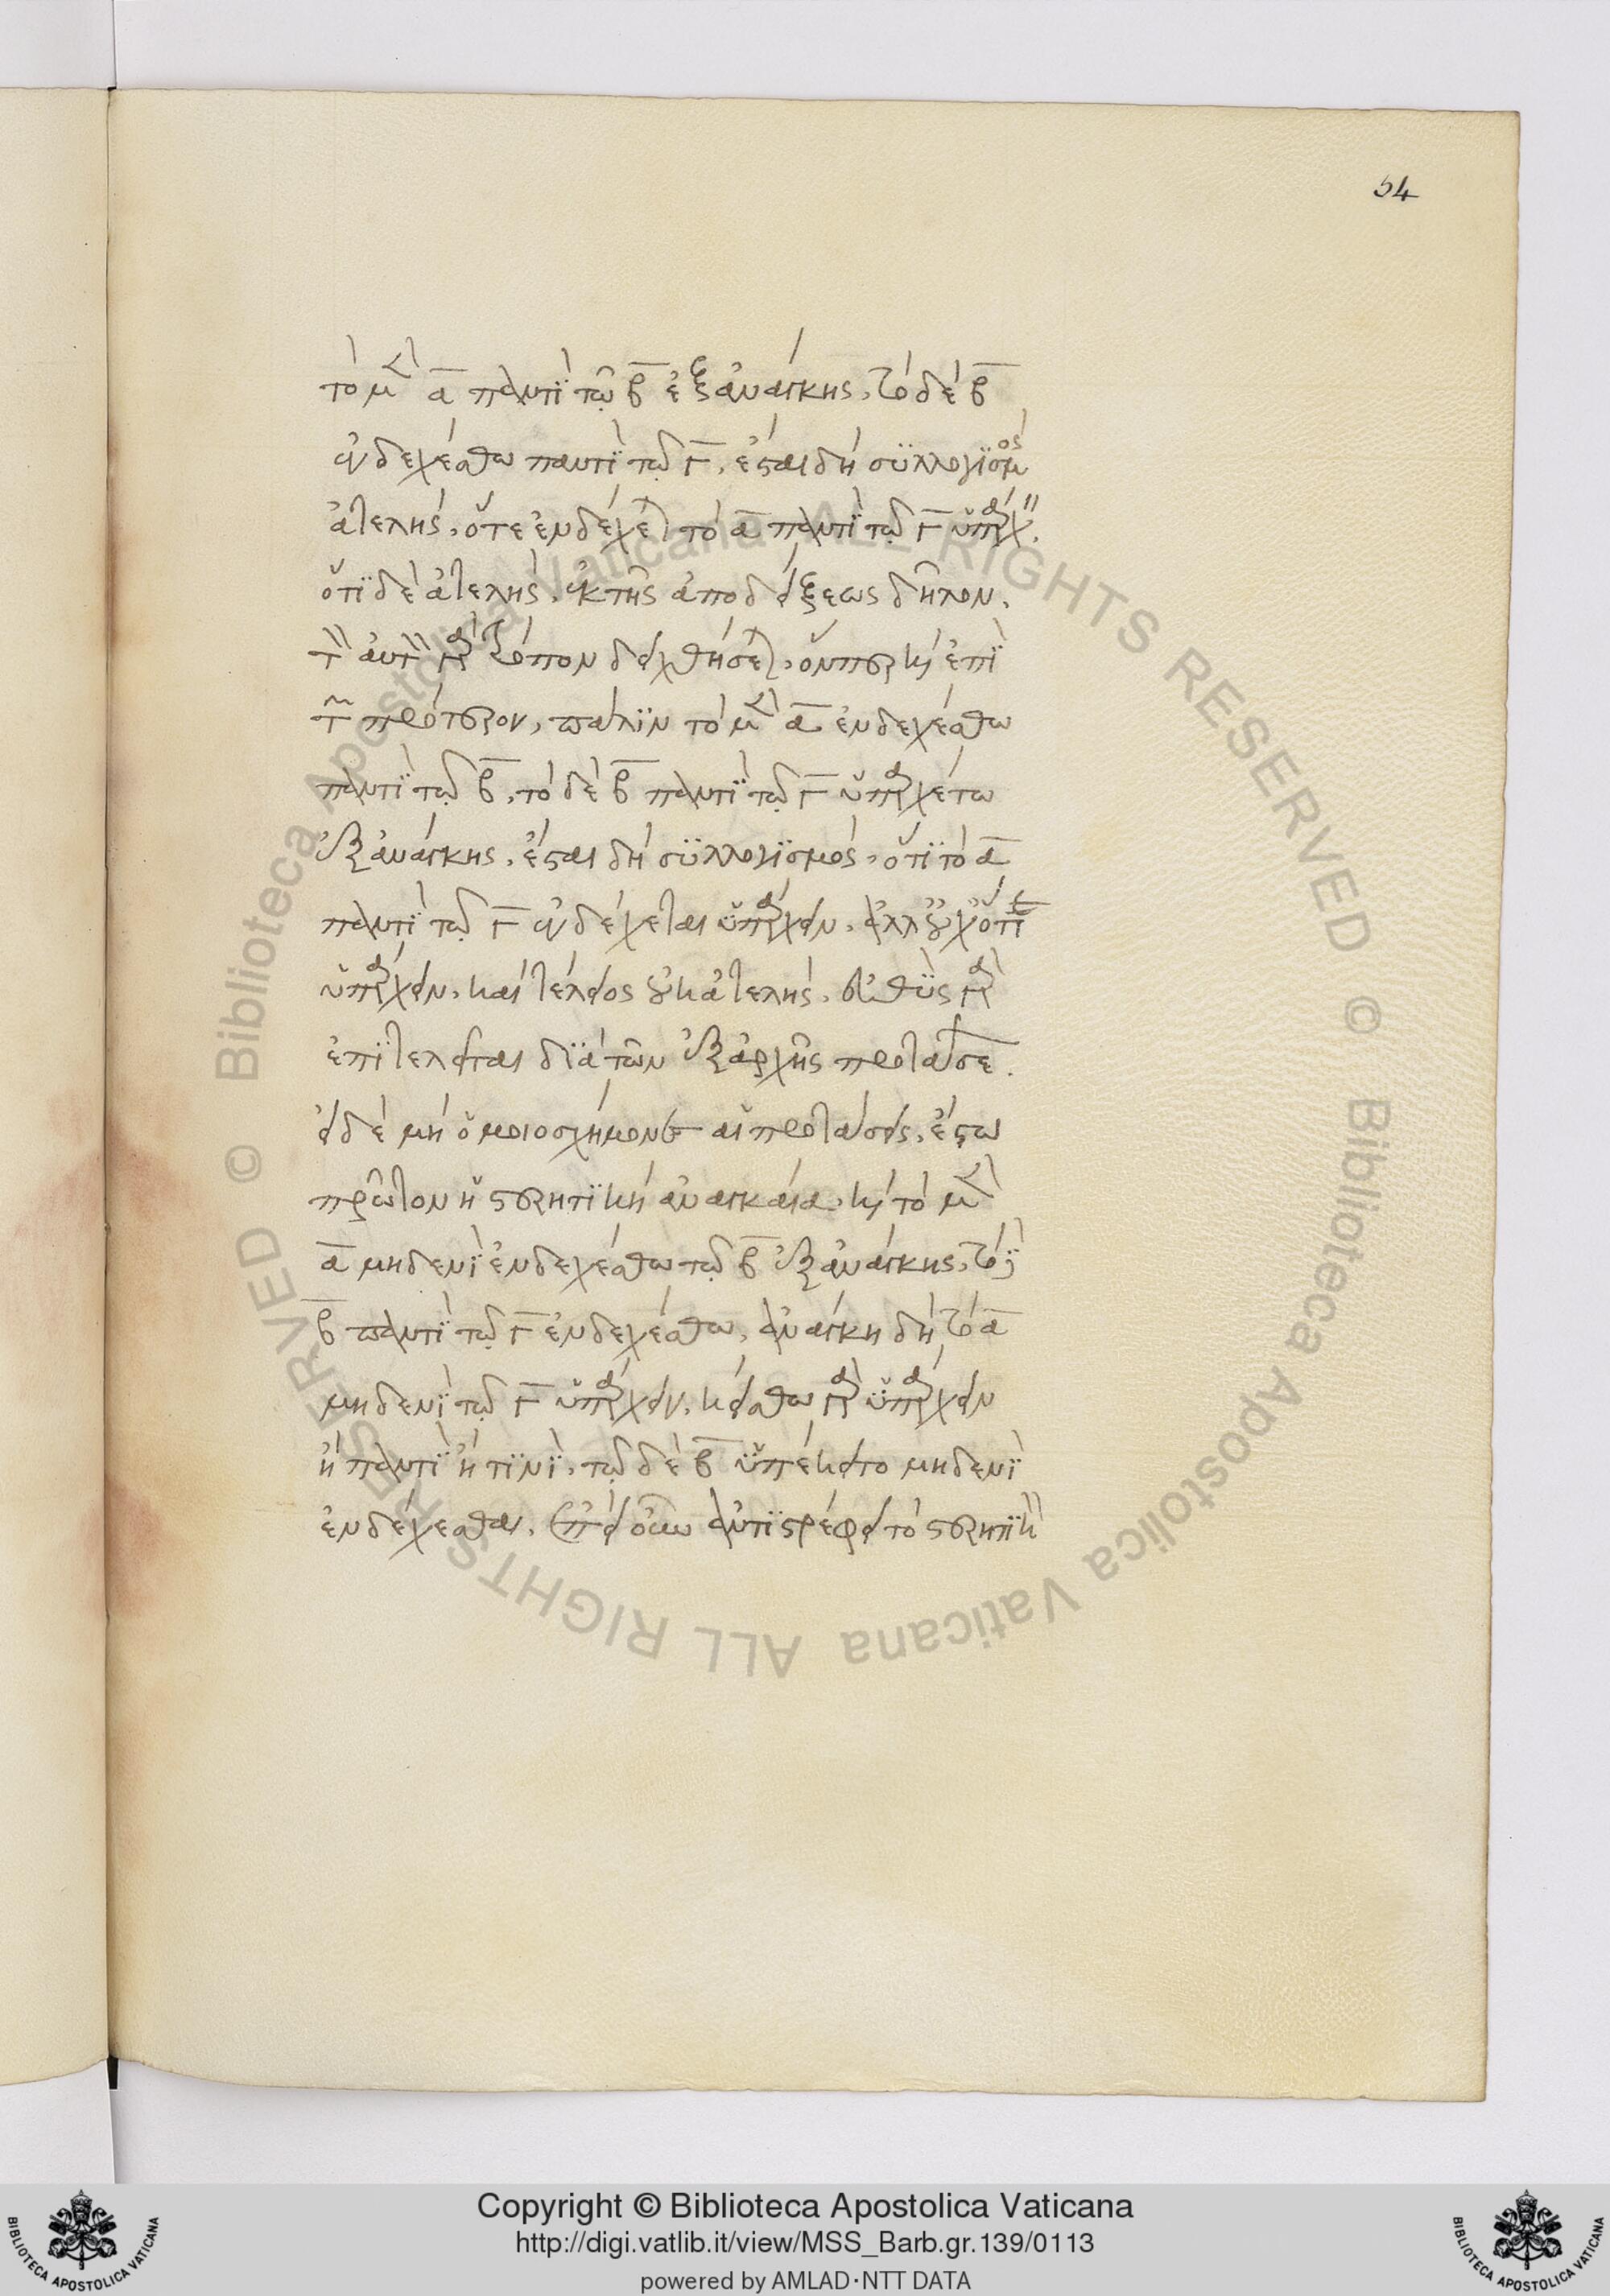 54
τὸ μὲν α̅ παντὶ τῷ β̅ ἐξανάγκης, τὸ δὲ β̅
ἐνδεχέσθω παντὶ τῷ γ̅, ἔσται δὴ συλλογισμὸς
ἀτελής, ὅτι ἐνδέχεται τὸ α̅ παντὶ τῷ γ̅ ὑπάρχειν.
ὅτι δὲ ἀτελής, ἐκ τῆς ἀποδείξεως δῆλον.
τὸν αὐτὸν γὰρ τρόπον δειχθήσεται, ὅνπερ καὶ ἐπὶ
τῶν πρότερον, πάλιν τὸ μὲν α̅ ἐνδεχέσθω
παντὶ τῷ β̅, τὸ δὲ β̅ παντὶ τῷ γ̅ ὑπαρχέτω
ἐξανάγκης, ἔσται δὴ συλλογισμός, ὅτι τὸ α̅
παντὶ τῷ γ̅ ἐνδέχεται ὑπάρχειν, ἀλλ' οὐχ ὅτι
ὑπάρχειν, καὶ τέλειος οὐκ ἀτελής, εὐθὺς γὰρ
ἐπιτελεῖται διὰ τῶν ἐξαρχῆς προτάσεων.
εἰ δὲ μὴ ὁμοιοσχήμονες αἱ προτάσεις, ἔστω
πρῶτον ἡ στερητικὴ ἀναγκαία, καὶ τὸ μὲν
α̅ μηδενὶ ἐνδεχέσθω τῷ β̅ ἐξανάγκης, τὸ δὲ
β̅ παντὶ τῷ γ̅ ἐνδεχέσθω, ἀνάγκη δὴ τὸ α̅
μηδενὶ τῷ γ̅ ὑπάρχειν, κείσθω γὰρ ὑπάρχειν
ἢ παντὶ ἢ τινὶ, τῷ δὲ β̅ ὑπέκειτο μηδενὶ
ἐνδέχεσθαι, ἐπεὶ οὖν ἀντιστρέφει τὸ στερητικὸν
Copyright © Biblioteca Apostolica Vaticana
http://digi.vatlib.it/view/MSS_Barb.gr.139/0113
powered by AMLAD·NTT DATA
BIBLIOTECA APOSTOLICA VATICANA
BIBLIOTECA APOSTOLICA VATICANA
© Biblioteca Apostolica Vaticana ALL RIGHTS RESERVED © Biblioteca Apostolica Vaticana ALL RIGHTS RESERVED